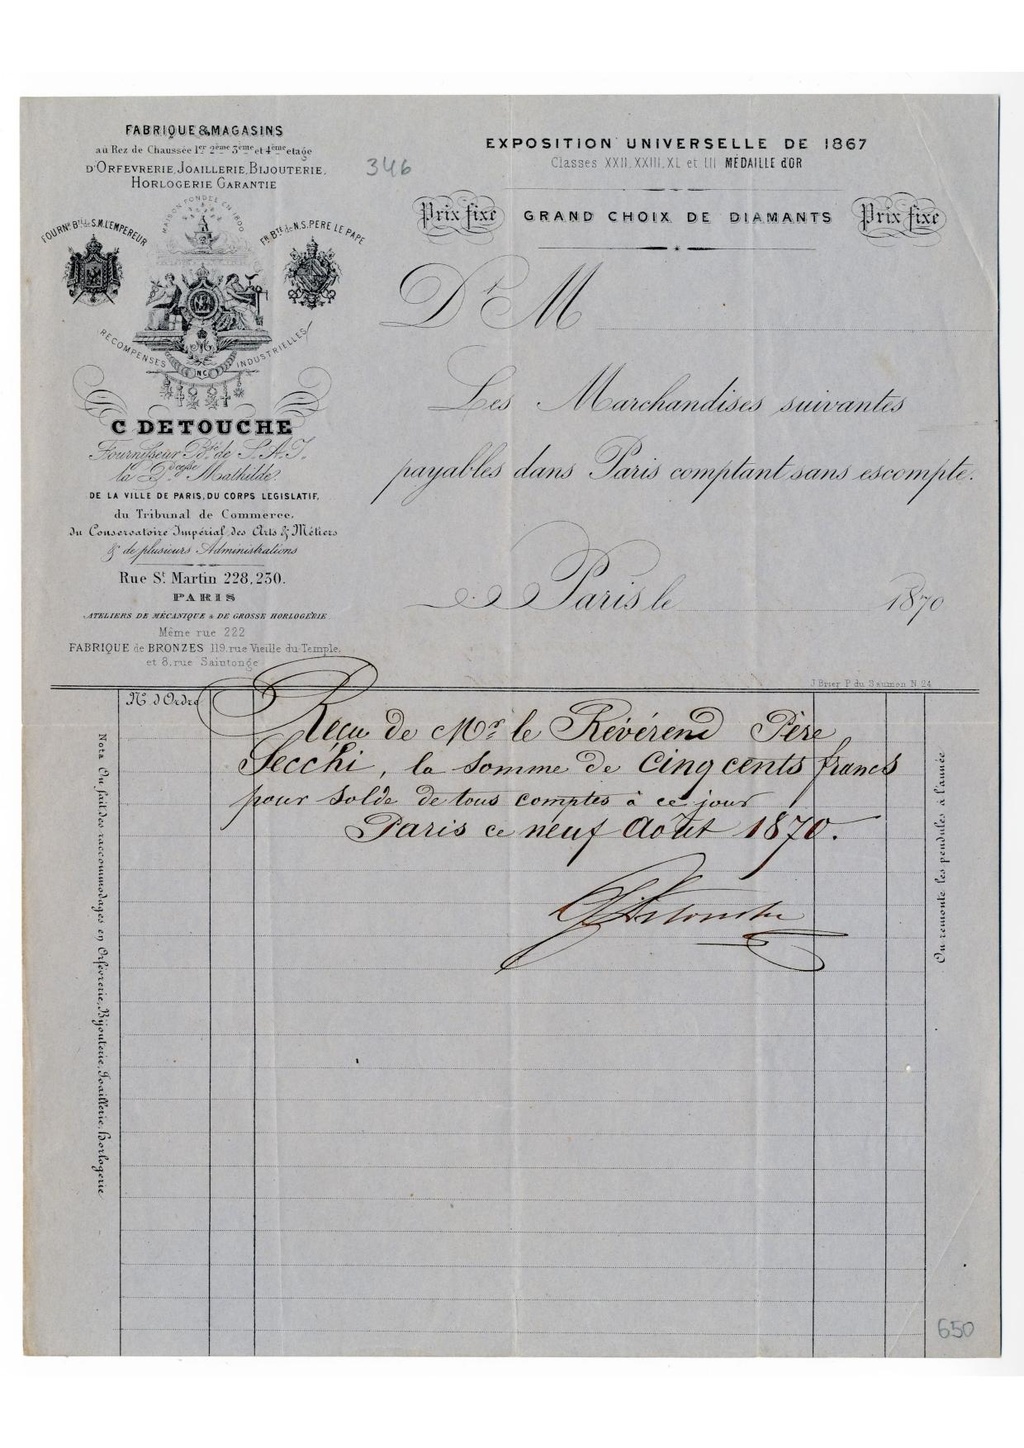 FABRIQUE & MAGASINS
au Rez de Chaussée 1er 2ème 3ème et 4ème etage
D'ORFEVRERIE, JOAILLERIE, BIJOUTERIE,
HORLOGERIE GARANTIE
MAISON FONDÉE EN 1800
FOURNr Bté de S.M. L'EMPEREUR
Fr Bté de N.S. PERE LE PAPE
RECOMPENSES INDUSTRIELLES
C DETOUCHE
Fournisseur Bté de S.A.I.
la Pcesse Mathilde
DE LA VILLE DE PARIS, DU CORPS LEGISLATIF,
du Tribunal de Commerce,
du Conservatoire Impérial des Arts & Métiers
& de plusieurs Administrations
Rue St Martin 228, 230.
PARIS
ATELIERS DE MÉCANIQUE & DE GROSSE HORLOGERIE
Même rue 222
FABRIQUE de BRONZES 119, rue Vieille du Temple,
et 8, rue Saintonge
346
EXPOSITION UNIVERSELLE DE 1867
Classes XXII, XXIII, XL et LII MÉDAILLE d'OR
Prix fixe GRAND CHOIX DE DIAMANTS Prix fixe
Dt M
Les Marchandises suivantes
payables dans Paris comptant sans escompte.
Paris le 1870
J Brier P. du Saumon N. 24
No d'Ordre
Reçu de Mr le Révérend Père
Secchi, la somme de Cinq cents francs
pour solde de tous comptes à ce jour
Paris ce neuf Août 1870.
C Detouche
Nota On fait des raccommodages en Orfèvrerie, Bijouterie, Joaillerie, Horlogerie
On remonte les pendules à l'année
650